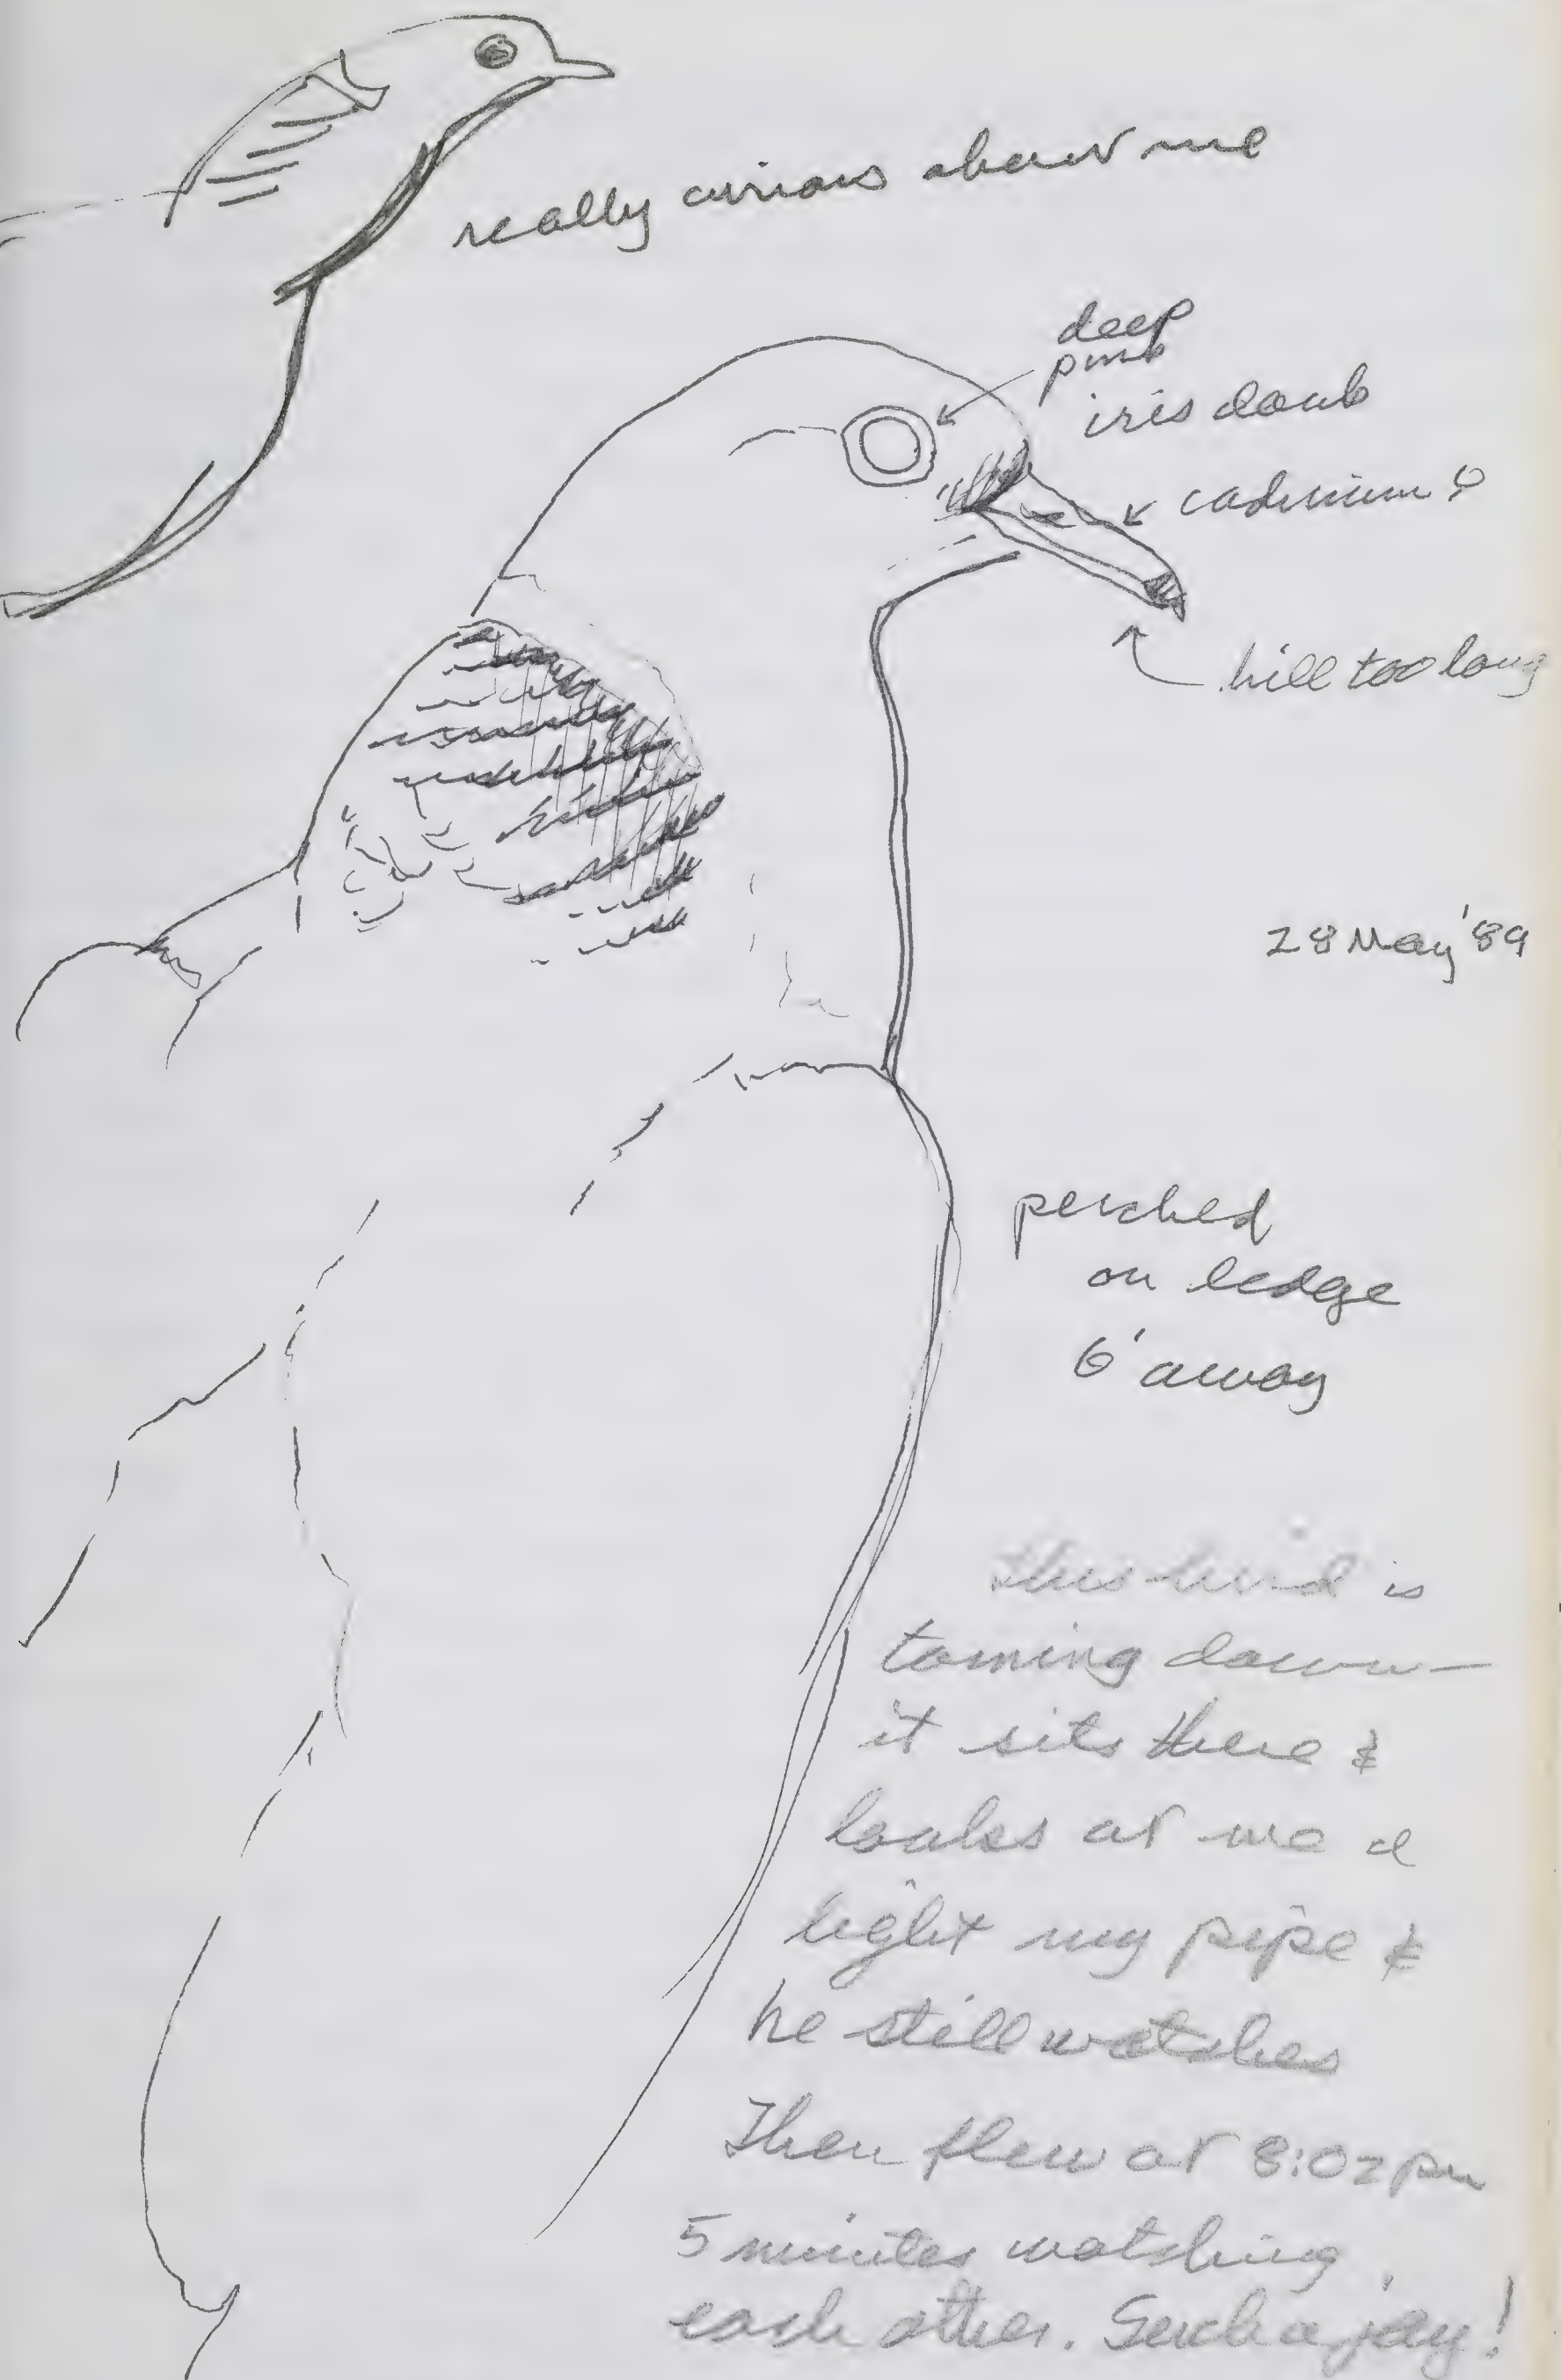 really curious about me
deep
pink
iris dark
cadmium ?
bill too long
28 May '89
perched
on ledge
6' away
this bird is
taming down —
it sits there &
looks at me I
light my pipe &
he still watches
Then flew at 8:02 pm
5 minutes watching
each other. Such a joy!